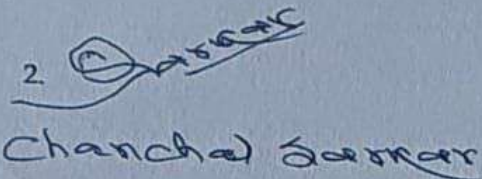 2. C Sarkar
Chanchal Sarkar